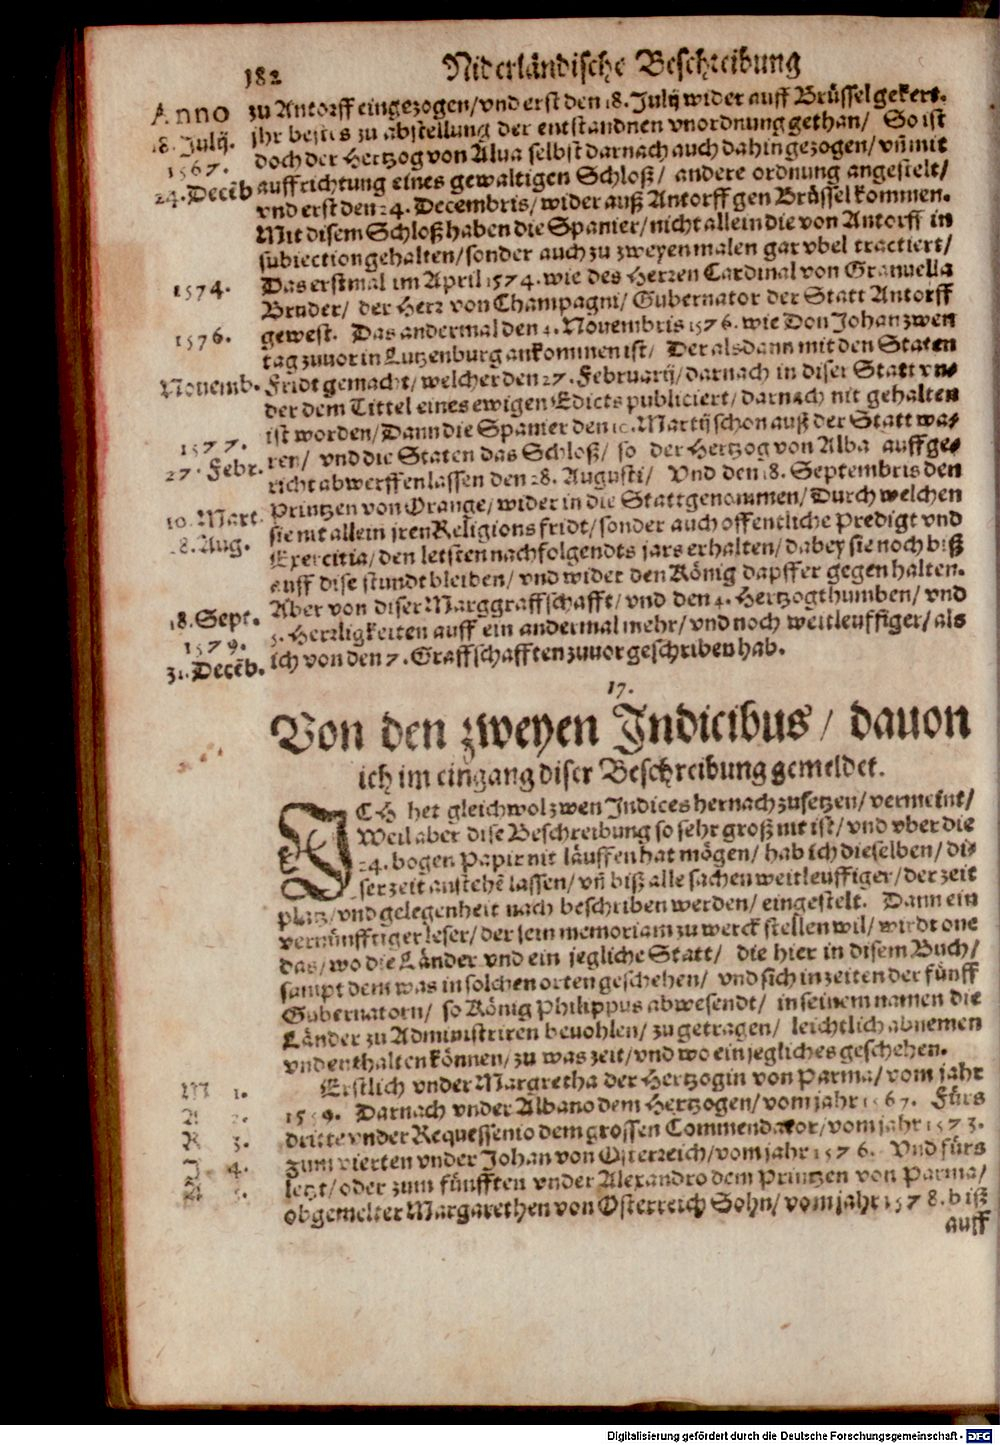 182 Niderländische Beschreibung
Anno
18. Julij.
1567.
24. Decēb
1574.
1576.
Novemb.
1577.
27. Febr.
10. Mart.
28. Aug.
18. Sept.
1579.
31. Decēb.
zu Antorff eingezogen/ vnd erst den 18. Julij wider auff Brüssel gekert.
jhr bestes zu abstellung der entstandnen vnordnung gethan/ So ist
doch der Hertzog von Alua selbst darnach auch dahin gezogen/ vñ mit
auffrichtung eines gewaltigen Schloß/ andere ordnung angestelt/
vnd erst den 24. Decembris/ wider auß Antorff gen Brüssel kommen.
Mit disem Schloß haben die Spanier/ nicht allein die von Antorff in
subiection gehalten/ sonder auch zu zweyen malen gar vbel tractiert/
Das erstmal im April 1574. wie des Herren Cardinal von Granuella
Bruder/ der Herr von Champagni/ Gubernator der Statt Antorff
gewest. Das ander mal den 4. Nouembris 1576. wie Don Johan zwen
tag zuuor in Lutzenburg ankommen ist/ Der alsdann mit den Staten
Fridt gemacht/ welcher den 27. Februarij/ darnach in diser Statt vn-
der dem Tittel eines ewigen Edicts publiciert/ darnach nit gehalten
ist worden/ Dann die Spanier den 10. Martij schon auß der Statt wa-
ren/ vnd die Staten das Schloß/ so der Hertzog von Alba auffge-
richt abwerffen lassen den 28. Augusti/ Vnd den 18. Septembris den
Printzen von Orange/ wider in die Statt genommen/ Durch welchen
sie nit allein jren Religions fridt/ sonder auch offentliche Predigt vnd
Exercitia/ den letsten nachfolgendts jars erhalten/ dabey sie noch biß
auff dise stundt bleiben/ vnd wider den König dapffer gegen halten.
Aber von diser Marggraffschafft/ vnd den 4. Hertzogthumben/ vnd
5. Herrligkeiten auff ein andermal mehr/ vnd noch weitleuffiger/ als
ich von den 7. Graffschafften zuuor geschriben hab.
17.
Von den zweyen Indicibus/ dauon
ich im eingang diser Beschreibung gemeldet.
ICH het gleichwol zwen Indices hernach zusetzen/ vermeint/
Weil aber dise Beschreibung so sehr groß nit ist/ vnd vber die
24. bogen Papir nit läuffen hat mögen/ hab ich dieselben/ di-
ser zeit anstehē lassen/ vñ biß alle sachen weitleuffiger/ der zeit
platz/ vnd gelegenheit nach beschriben werden/ eingestelt. Dann ein
vernünfftiger leser/ der sein memoriam zu werck stellen wil/ wirdt one
das/ wo die Länder vnd ein jegliche Statt/ die hier in disem Buch/
sampt dem was in solchen orten geschehen/ vnd sich in zeiten der fünff
Gubernatorn/ so König Philippus abwesendt/ in seinem namen die
Länder zu Administriren beuohlen/ zu getragen/ leichtlich abnemen
vnd enthalten können/ zu was zeit/ vnd wo ein jegliches geschehen.
M 1.
A 2.
R 3.
J 4.
A 5.
Erstlich vnder Margretha der Hertzogin von Parma/ vom jahr
1559. Darnach vnder Albano dem Hertzogen/ vom jahr 1567. Fürs
dritte vnder Requessenio dem grossen Commendator/ vom jahr 1573.
zum vierten vnder Johan von Osterreich/ vom jahr 1576. Vnd fürs
letzt/ oder zum fünfften vnder Alexandro dem Printzen von Parma/
obgemelter Margarethen von Osterreich Sohn/ vom jahr 1578. biß
auff
Digitalisierung gefördert durch die Deutsche Forschungsgemeinschaft - DFG